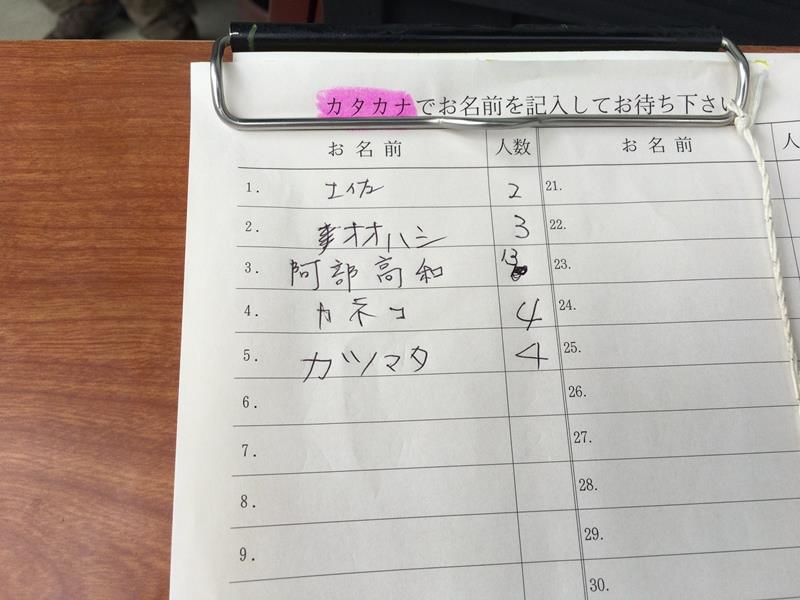 カタカナでお名前を記入してお待ち下さい
お名前 人数 お名前 人
1. 土佐 2 21.
2. オオハシ 3 22.
3. 阿部高和 13 23.
4. カネコ 4 24.
5. カツマタ 4 25.
6. 26.
7. 27.
8. 28.
9. 29.
30.